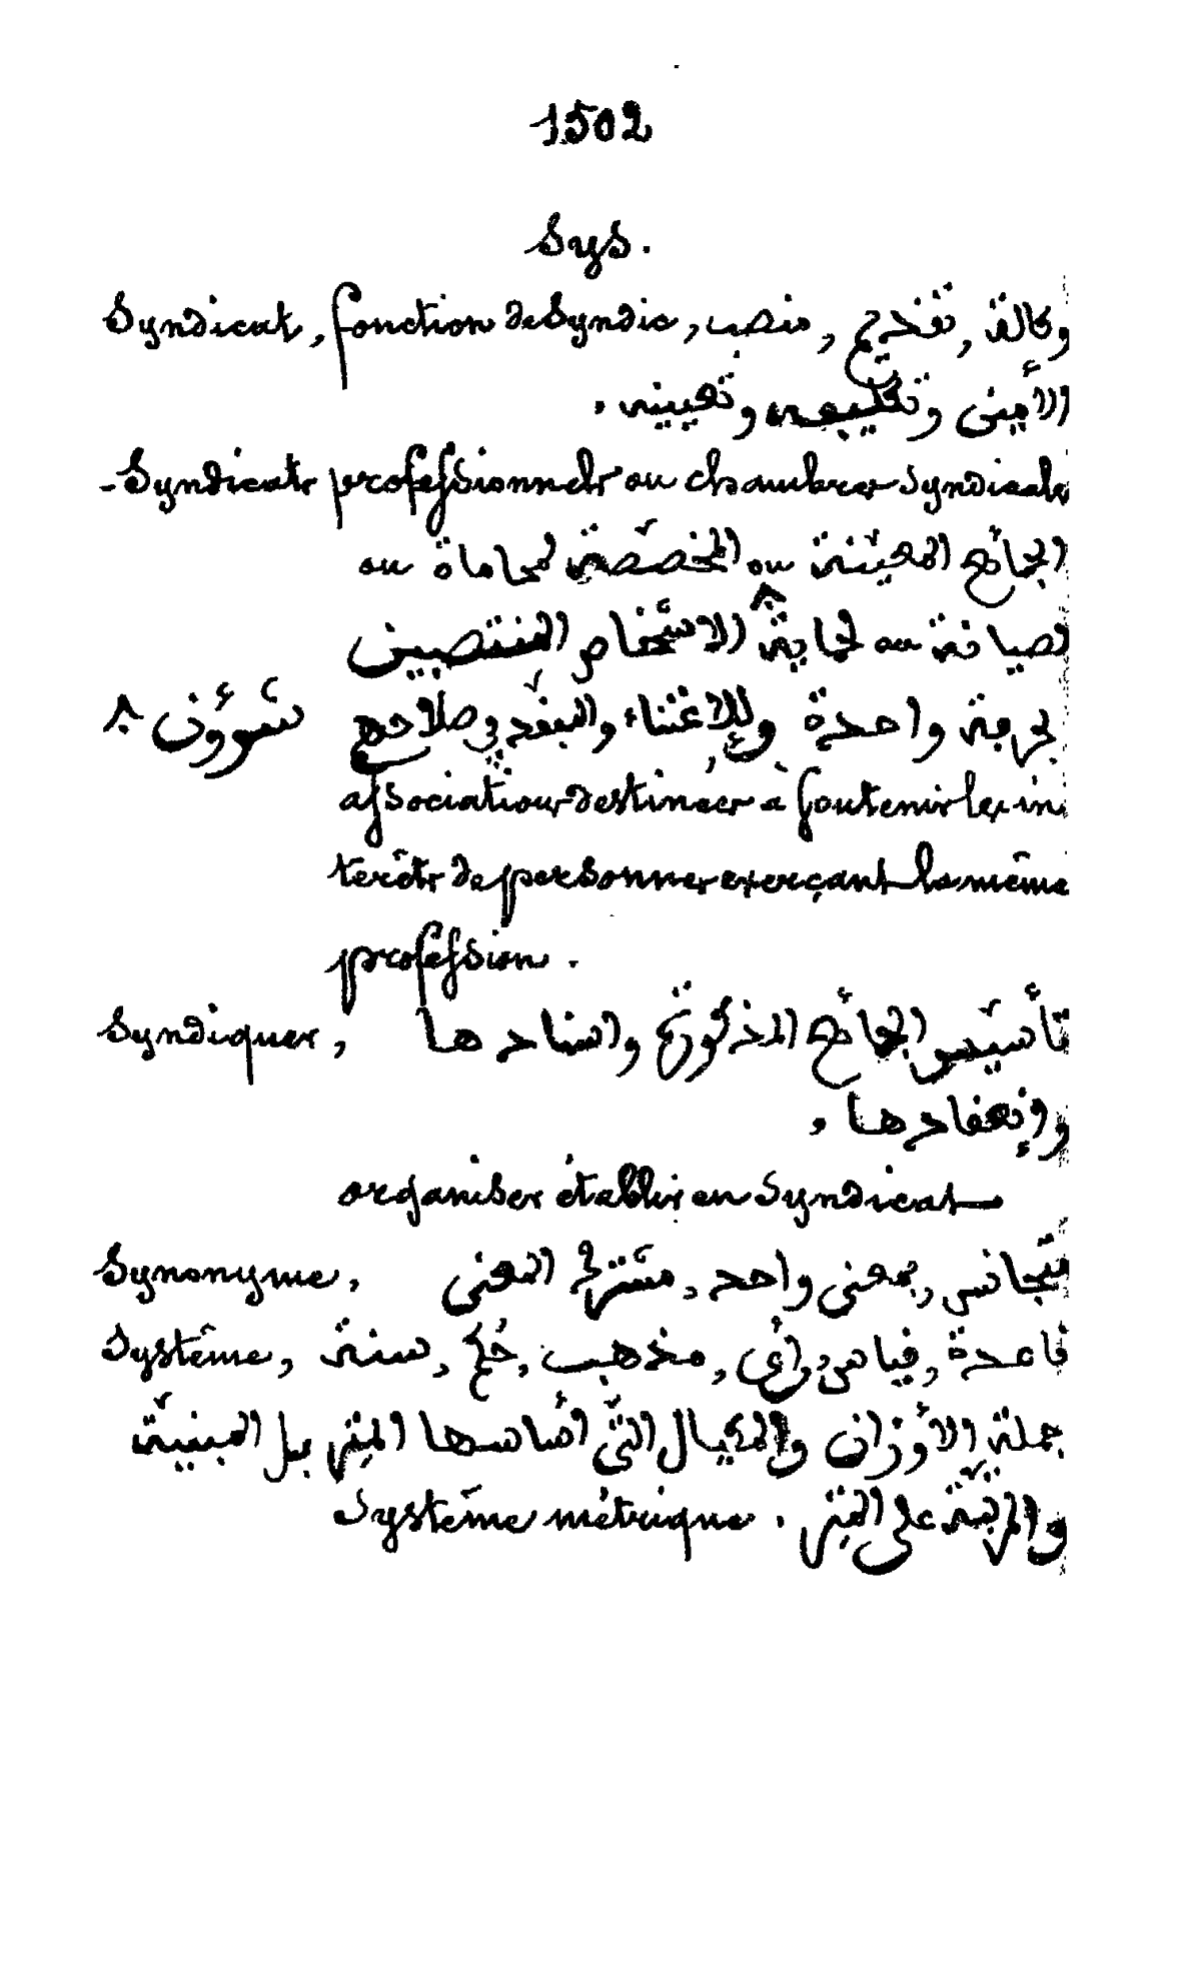 1502
Sys.
Syndicat, fonction de Syndic, منصب, تقديم, وكالة
الأمين وتكليفه وتعيينه,
- Syndicats professionnels ou chambres syndicales
الجمائع المعيّنة ou المخصّصة لمحاماة ou
لصيانة ou لحماية الاشخاص المنتصبين
لحرفة واحدة وللاعتناء والتفقّد في صلاح شؤون
associations destinées à soutenir les in
térêts de personnes exerçant la même
profession.
Syndiquer, تأسيس الجمائع المذكورة واسنادها
وانعقادها,
organiser établir en Syndicat
Synonyme, متجانس, بمعنى واحد, مشترك المعنى
Système, قاعدة, قياس, رأي, مذهب, حُكم, سنة
جملة الأوزان والمكيال التي أساسها المتر بل المبنيّة
والمرتّبة على المتر. Système métrique